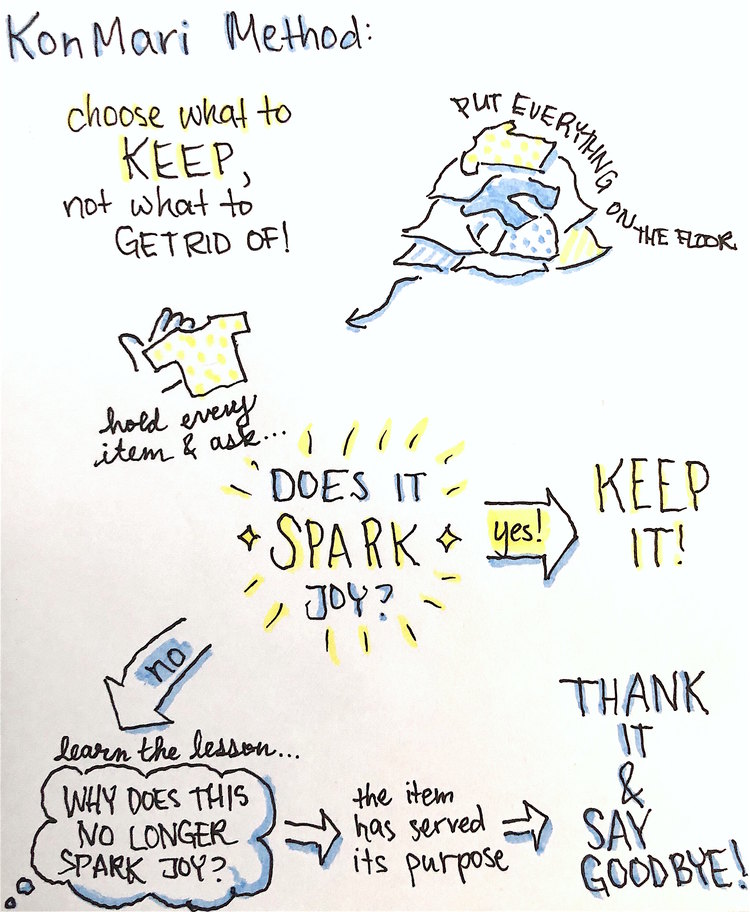 KonMari Method:
choose what to
KEEP,
not what to
GET RID OF!
PUT EVERYTHING ON THE FLOOR
hold every
item & ask...
DOES IT
SPARK
JOY?
yes!
KEEP
IT!
no
learn the lesson...
WHY DOES THIS
NO LONGER
SPARK JOY?
the item
has served
its purpose
THANK
IT
&
SAY
GOODBYE!